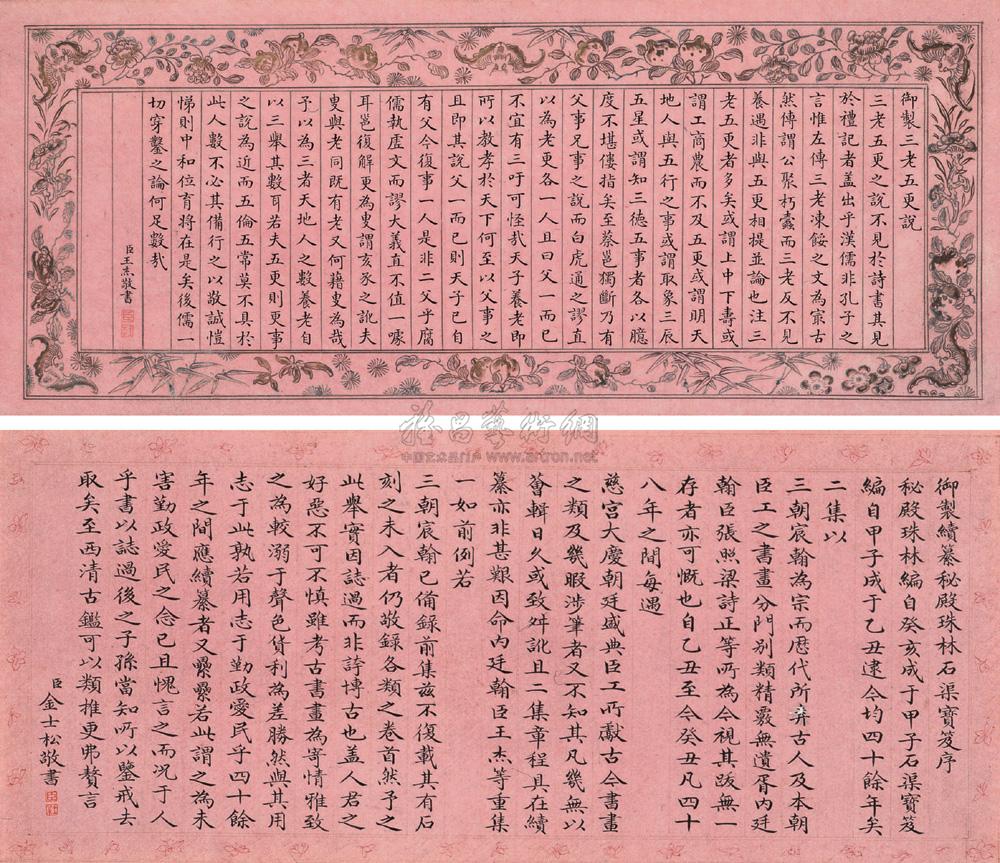 御製三老五更說
三老五更之說不見於詩書其見
於禮記者蓋出乎漢儒非孔子之
言惟左傳三老凍餒之文為宲古
然傳謂公聚朽蠹而三老反不見
養遇非與五更相提並論也注三
老五更者多矣或謂上中下壽或
謂工商農而不及五更或謂明天
地人與五行之事或謂取象三辰
五星或謂知三德五事者各以臆
度不堪僂指矣至蔡邕獨斷乃有
父事兄事之說而白虎通之謬直
以為老更各一人且曰父一而已
不宜有三吁可怪哉天子養老即
所以教孝於天下何至以父事之
且即其說父一而已則天子已自
有父今復事一人是非二父乎腐
儒執虛文而謬大義直不值一噱
耳邕復解更為叟謂亥豕之訛夫
叟與老同既有老又何藉叟為哉
予以為三者天地人之數養老自
以三舉其數耳若夫五更則更事
之說為近而五倫五常莫不具於
此人數不必其備行之以敬誠愷
悌則中和位育將在是矣後儒一
切穿鑿之論何足數哉
臣王杰敬書
雅昌藝術網
中国艺术品门户 www.artron.net
御製續纂秘殿珠林石渠寶笈序
秘殿珠林編自癸亥成于甲子石渠寶笈
編自甲子成于乙丑逮今均四十餘年矣
二集以
三朝宸翰為宗而歷代所弆古人及本朝
臣工之書畫分門別類精覈無遺胥內廷
翰臣張照梁詩正等所為今視其跋無一
存者亦可慨也自乙丑至今癸丑凡四十
八年之間每遇
慈宮大慶朝廷盛典臣工所獻古今書畫
之類及幾暇涉筆者又不知其凡幾無以
薈輯日久或致舛訛且二集章程具在續
纂亦非甚艱因命內廷翰臣王杰等重集
一如前例若
三朝宸翰已備錄前集茲不復載其有石
刻之未入者仍敬錄各類之卷首然予之
此舉實因誌過而非誇博古也蓋人君之
好惡不可不慎雖考古書畫為寄情雅致
之為較溺于聲色貨利為差勝然與其用
志于此孰若用志于勤政愛民乎四十餘
年之間應續纂者又纍纍若此謂之為未
害勤政愛民之念已且愧言之而況于人
乎書以誌過後之子孫當知所以鑒戒去
取矣至西清古鑑可以類推更弗贅言
臣金士松敬書